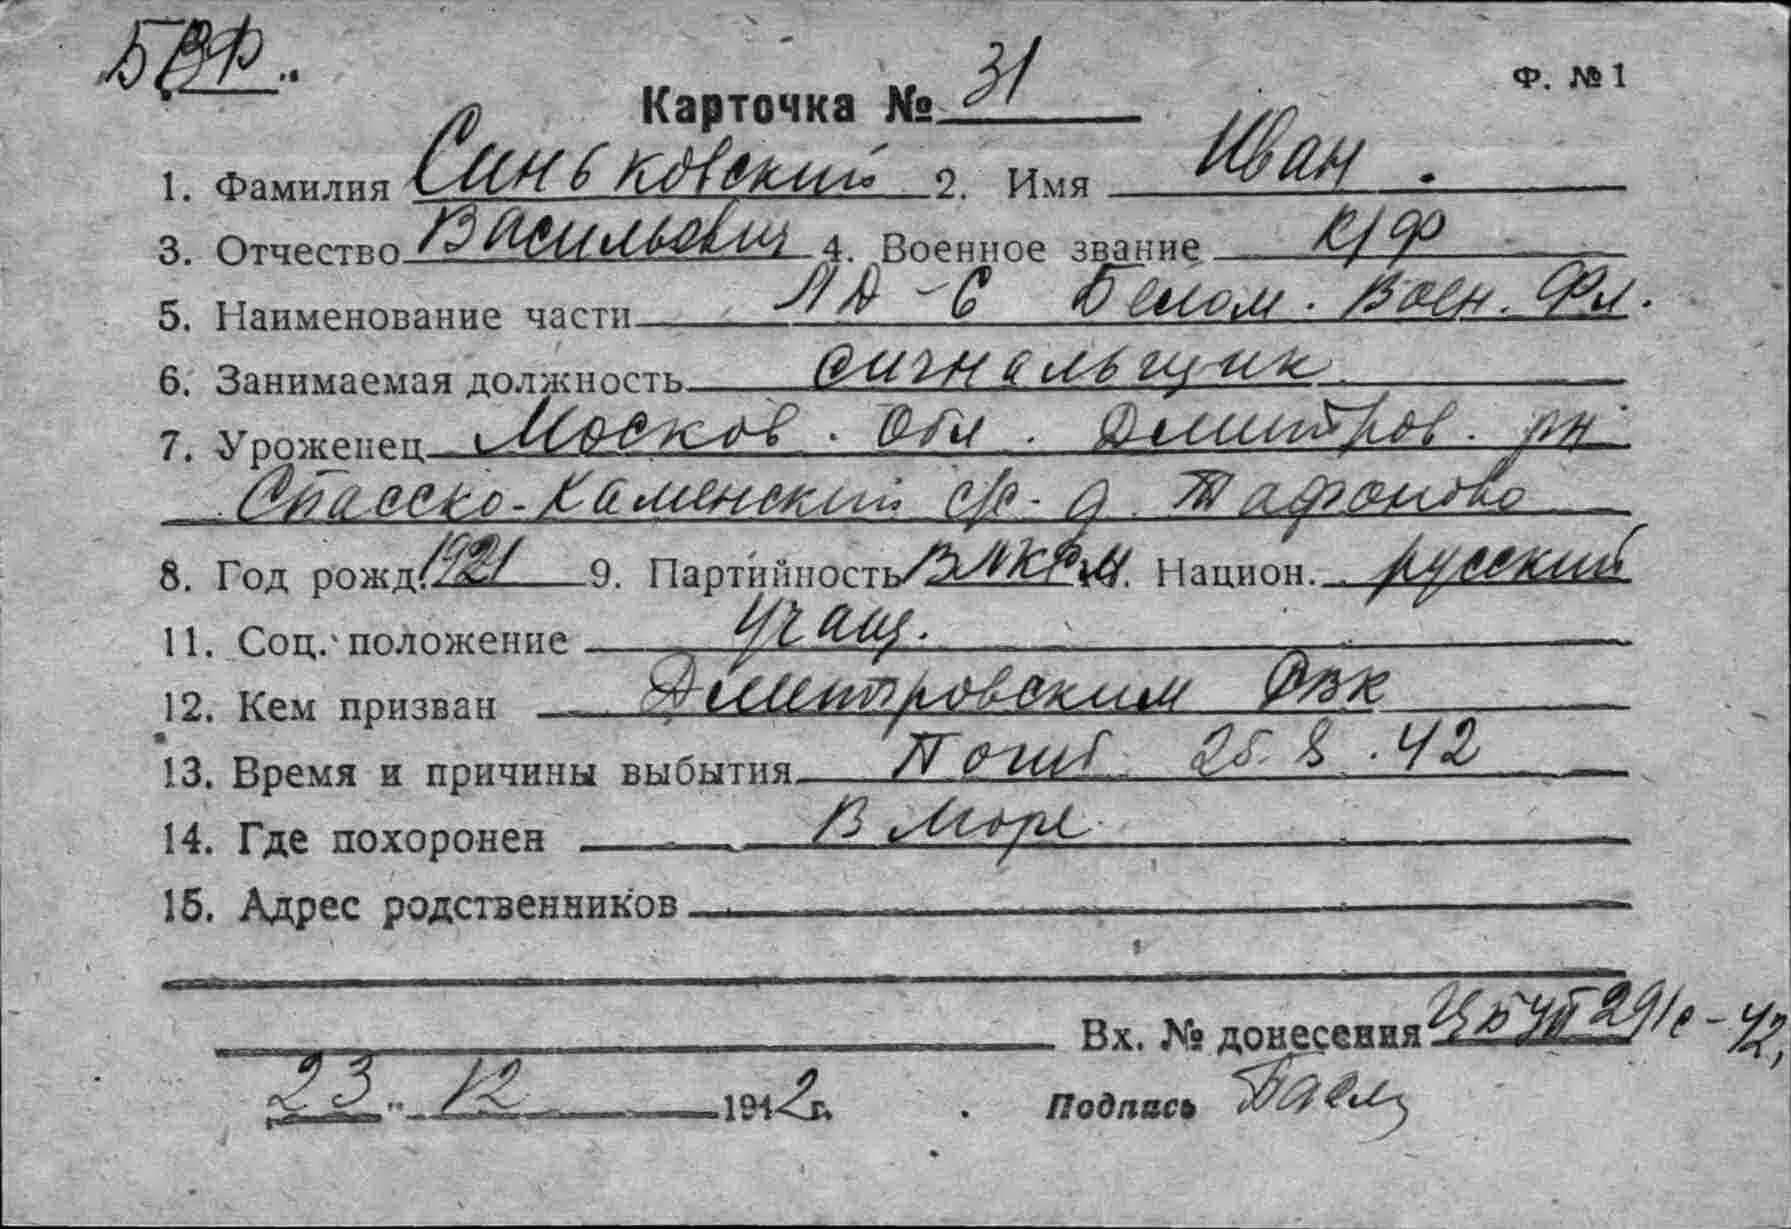 БВФ..
Ф. №1
Карточка № 31
1. Фамилия Синьковский 2. Имя Иван .
3. Отчество Васильевич 4. Военное звание к/ф
5. Наименование части ЛД-6 Белом. Воен. Фл.
6. Занимаемая должность сигнальщик
7. Уроженец Москов. Обл. Дмитров. рн
Спасско-Каменский с/с - д.
8. Год рожд. 1921 9. Партийность ВЛКСМ. Национ. русский
11. Соц. положение учащ.
12. Кем призван Дмитровским РВК
13. Время и причины выбытия Погиб 25.8.42
14. Где похоронен В море
15. Адрес родственников
Вх. № донесения 291с-42
23 " 12 1942г.
Подпись